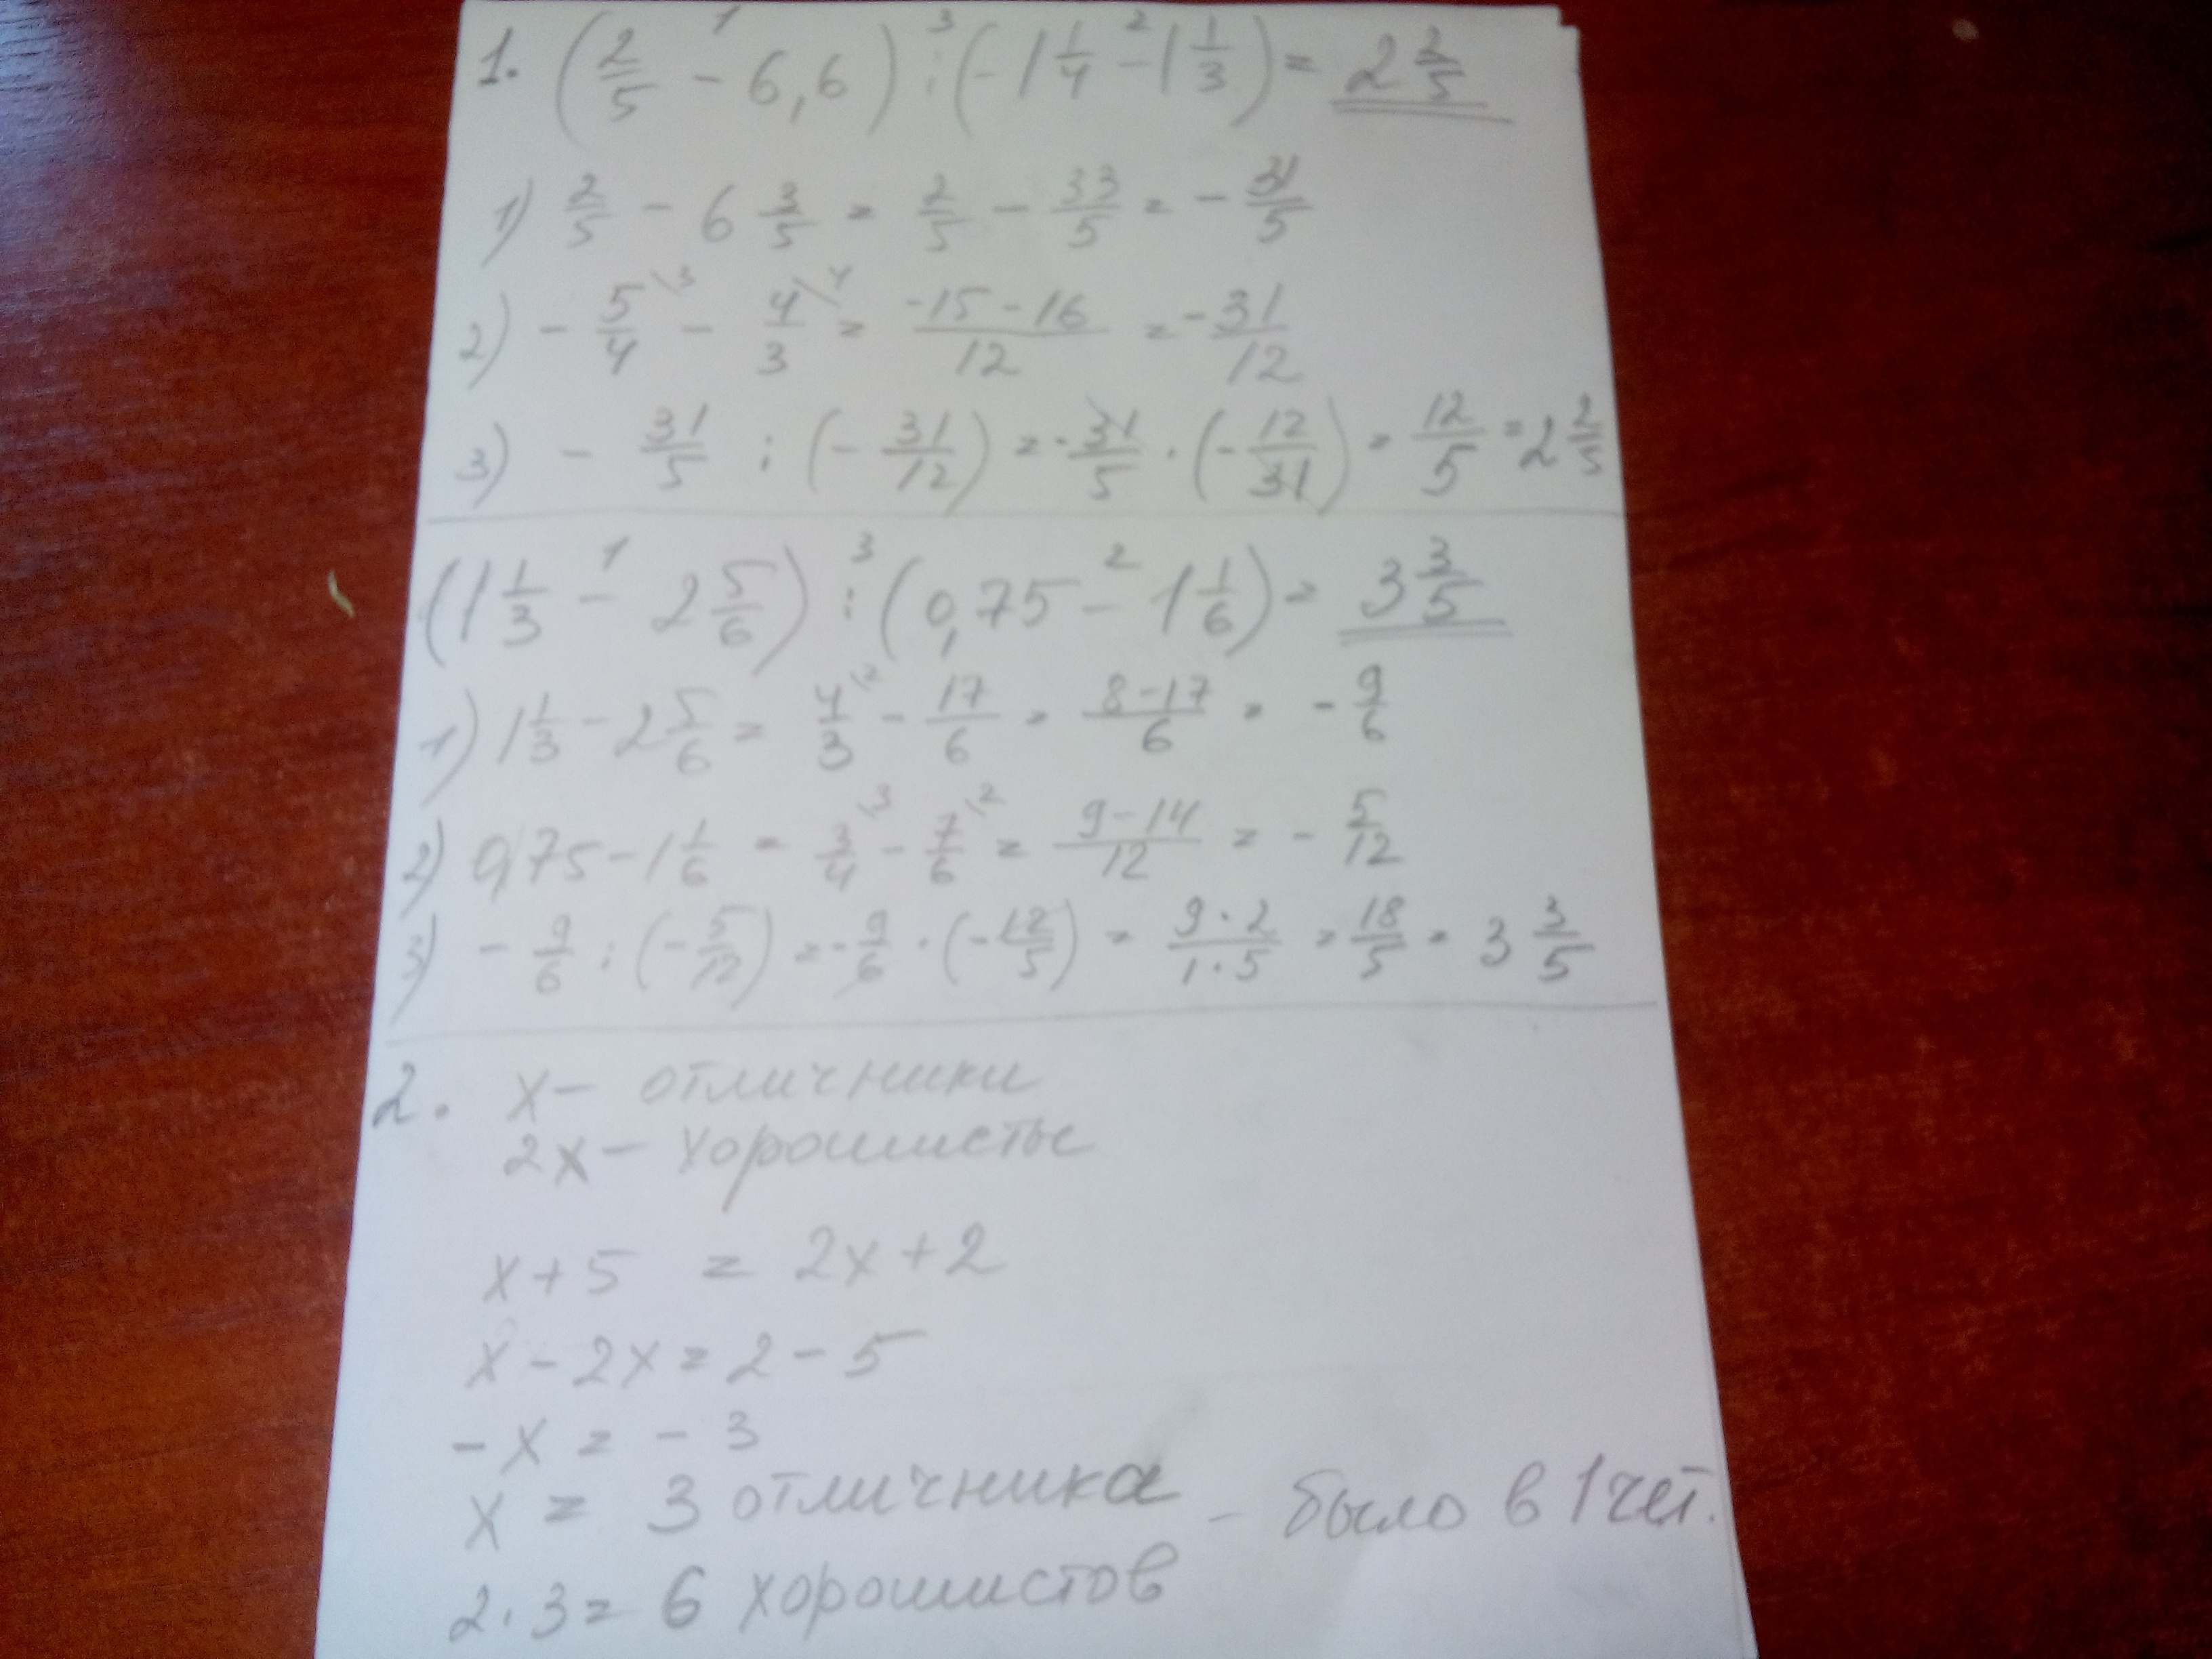 1. (2/5 - 6,6) : (-1 1/4 - 1 1/3) = 2 2/5
1) 2/5 - 6 3/5 = 2/5 - 33/5 = - 31/5
2) - 5/4 \3 - 4/3 \4 = -15-16/12 = - 31/12
3) - 31/5 : (- 31/12) = - 31/5 · (- 12/31) = 12/5 = 2 2/5
(1 1/3 - 2 5/6) : (0,75 - 1 1/6) = 3 3/5
1) 1 1/3 - 2 5/6 = 4/3 \2 - 17/6 = 8-17/6 = - 9/6
2) 0,75 - 1 1/6 = 3/4 \3 - 7/6 \2 = 9-14/12 = - 5/12
3) - 9/6 : (- 5/12) = - 9/6 · (- 12/5) = 9·2/1·5 = 18/5 = 3 3/5
2. x - отличники
2x - хорошисты
x+5 = 2x+2
x-2x=2-5
-x = -3
x = 3 отличника - было в 1 чет.
2·3= 6 хорошистов